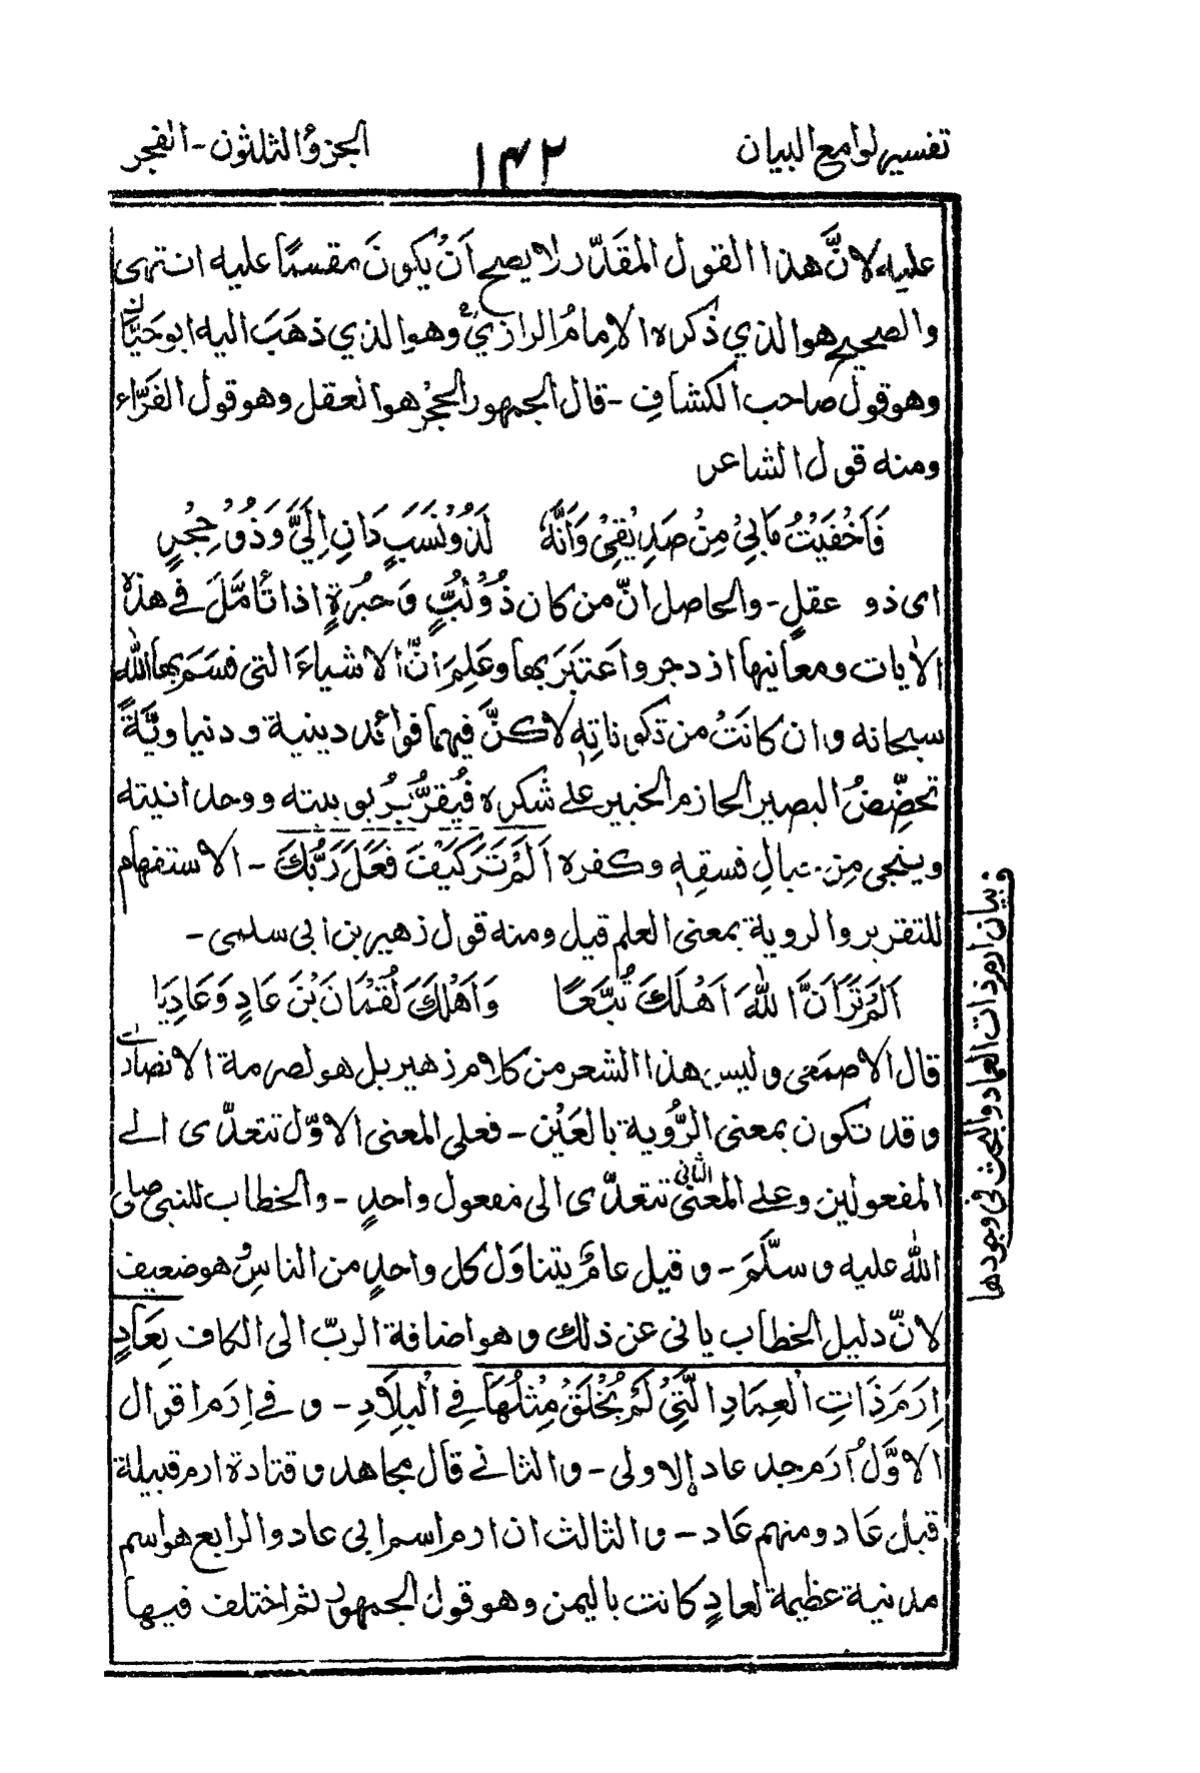 تفسير لوامع البيان
١٤٢
الجزؤ الثلثون - الفجر
عليه لانَّ هذا القول المقدّر لا يصح اَنْ يكونَ مقسمًا عليه انتهى
والصحيح هو الذي ذكره الاِمامُ الرازيُّ وهو الذي ذهَبَ اليه ابو حَيَّان
وهو قول صاحب الكشافِ - قال الجمهور الحِجْر هو العقل وهو قول الفَرَّاء
ومنه قول الشاعر
فَاَخْفَيْتُ مَا بِيْ مِنْ صَدِيْقِيْ وَاَنَّهٗ لَذُوْ نَسَبٍ دَانٍ اِلَيَّ وَذُوْ حِجْرٍ
اى ذو عقلٍ - والحاصل انّ من كان ذُوْ لُبٍّ وَ خبْرَةٍ اذا تأَمَّلَ فى هذه
الاٰيات ومعانيها ازدجر واعتبَرَ بها وعَلِمَ انّ الاشياءَ التى قسَمَ بها اللّٰه
سبحانه وان كانَتْ من تكوناتِهٖ لاكنَّ فيهما فوائد دينية و دنياويَّةً
تحضِّضُ البصير الحازم الخبير على شكره فيُقرُّ بربوبيته ووحدانيته
وينجى مِن وبالِ فسقِهٖ وكفره اَلَمْ تَرَ كَيْفَ فَعَلَ رَبُّكَ - الاستفهام
للتقرير والروية بمعنى العلم قيل ومنه قول زهير بن ابى سلمى -
اَلَمْ تَرَ اَنَّ اللّٰهَ اَهْلَكَ تُبَّعًا وَاَهْلَكَ لُقْمَانَ بْنَ عَادٍ وَعَادِيَا
قال الاصمَعى وليس هذا الشعر من كلام زهير بل هو لصرمة الانصارى
وقد تكون بمعنى الرُّوية بالعَيْن - فعلى المعنى الاوّل تتعدّى الى
المفعولين وعلى المعنى الثانى تتعدّى الى مفعول واحدٍ - والخطاب للنبى صلى
اللّٰه عليه وسلّمَ - وقيل عامٌ يتناوَل كل واحدٍ من الناسِ وهو ضعيف
لانّ دليل الخطاب يابى عن ذلك وهو اضافة الربّ الى الكاف بِعَادٍ
اِرَمَ ذَاتِ الْعِمَادِ الَّتِيْ لَمْ يُخْلَقْ مِثْلُهَا فِي الْبِلَادِ - وفى اِرَم اقوال
الاوَّلُ اِرَم جد عاد الاولى - والثانى قال مجاهد وقتادة ارم قبيلة
قبل عَاد ومنهم عَاد - والثالث ان ارم اسم ابى عاد والرابع هو اسم
مدنية عظيمة لعادٍ كانت باليمن وهو قول الجمهور ثم اختلف فيها
و بيان ارم ذات العماد والبحث فى وجودها